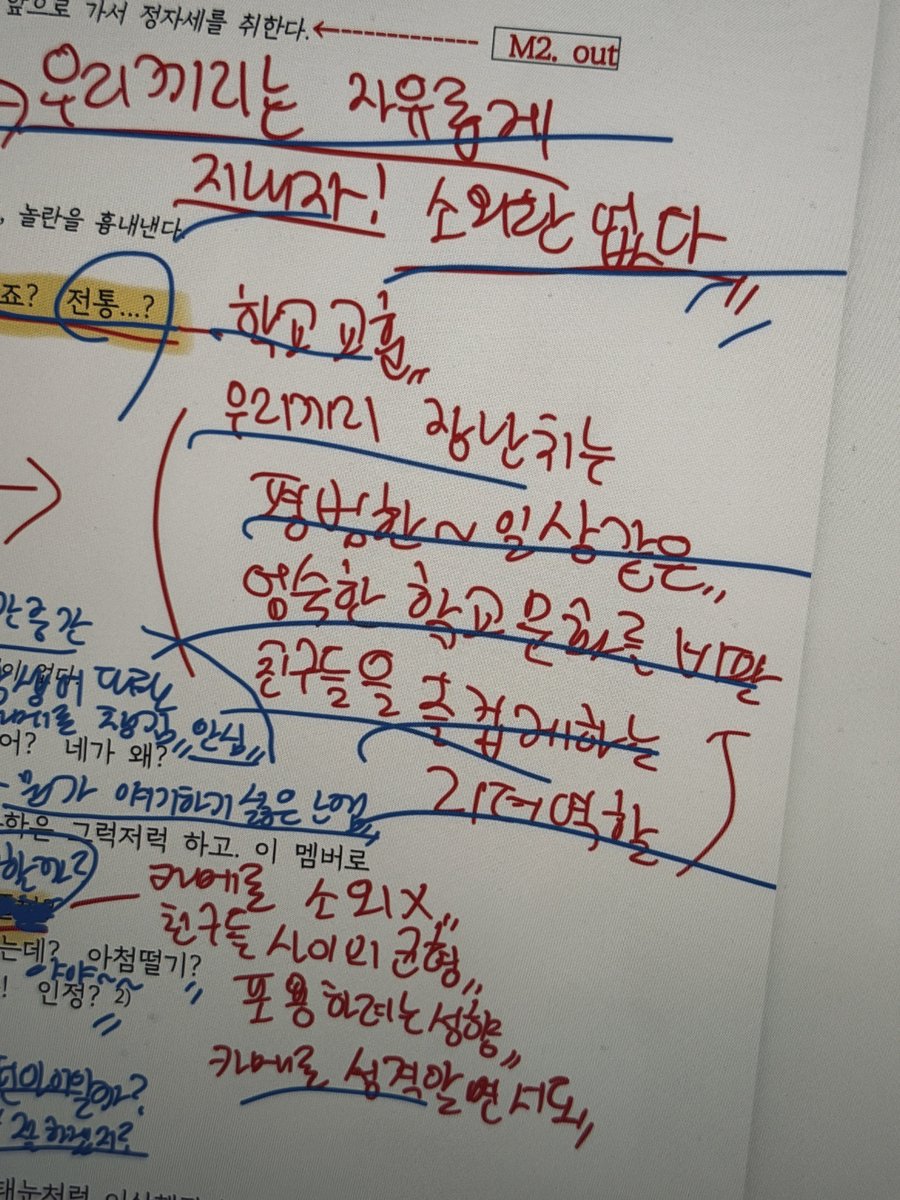 앞으로 가서 정자세를 취한다.
M2. out
우리끼리는 자유롭게
지내자! 소외란 없다
놀란을 흉내낸다.
죠? 전통...?
학교 교훈
우리끼리 장난치는
평범한~ 일상같은
엄숙한 학교 문화를 바꿀
친구들을 즐겁게하는
리더역할
어? 네가 왜? 안심
뭔가 얘기하기 싫은
하은 그럭저럭 하고. 이 멤버로
카메로 소외X
친구들 사이의 균형
는데? 아첨떨기?
야야~~
! 인정? 2)
포용하려는 성향
카메로 성격알면서도